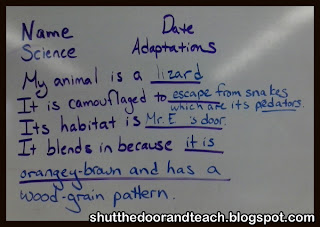 Name Date
Science Adaptations
My animal is a lizard
It is camouflaged to escape from snakes
which are its predators.
Its habitat is Mr. E's door.
It blends in because it is
orangey-brown and has a
wood-grain pattern.
shutthedoorandteach.blogspot.com